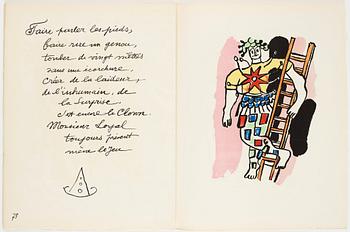 Faire parler les pieds,
faire rire un genou,
tomber de vingt mètres
sans une écorchure,
créer de la laideur,
de l'inhumain, de
la surprise
c'est encore le Clown
Monsieur Loyal
toujours présent
mène le jeu
78